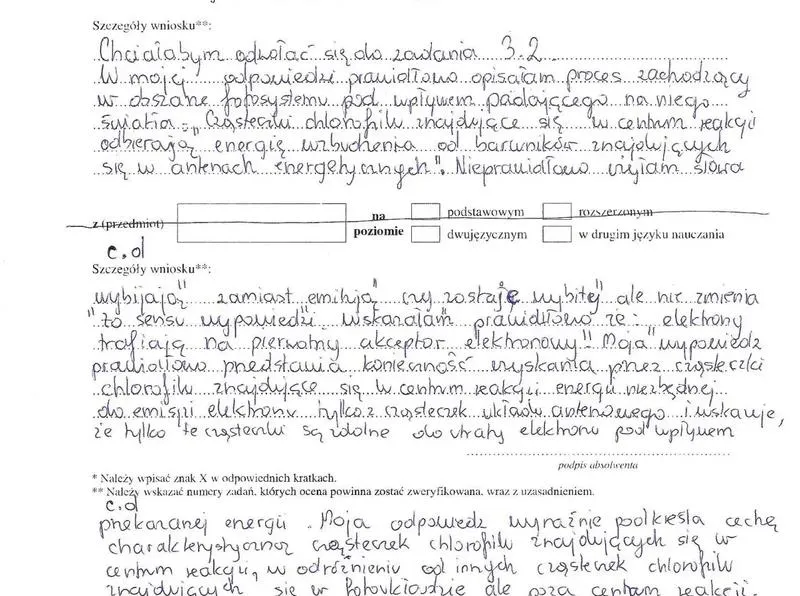 Szczegóły wniosku**:
Chciałabym odwołać się do zadania 3.2.
W mojej odpowiedzi prawidłowo opisałam proces zachodzący
w obszarze fotosystemu pod wpływem padającego na niego
światła: „Cząsteczki chlorofilu znajdujące się w centrum reakcji
odbierają energię wzbudzenia od barwników znajdujących
się w antenach energetycznych". Nieprawidłowo użyłam słowa
z (przedmiot) na poziomie podstawowym rozszerzonym
dwujęzycznym w drugim języku nauczania
c.d
Szczegóły wniosku**:
wybijają" zamiast emitują" czy zostaję wybite" ale nie zmienia
to sensu wypowiedzi wskazałam prawidłowo że: elektrony
trafiają na pierwotny akceptor elektronowy". Moja wypowiedz
prawidłowo przedstawia konieczność uzyskania przez cząsteczki
chlorofilu znajdujące się w centrum reakcji energii niezbędnej
do emisji elektronu tylko z cząsteczek układu antenowego i wskazuje,
że tylko te cząsteczki są zdolne do utraty elektronu pod wpływem
podpis absolwenta
* Należy wpisać znak X w odpowiednich kratkach.
** Należy wskazać numery zadań, których ocena powinna zostać zweryfikowana, wraz z uzasadnieniem.
c.d
przekazanej energii. Moja odpowiedz wyraźnie podkreśla cechę
charakterystyczną cząsteczek chlorofilu znajdujących się w
centrum reakcji, w odróżnieniu od innych cząsteczek chlorofilu
znajdujących się w fotoukładzie ale poza centrum reakcji.